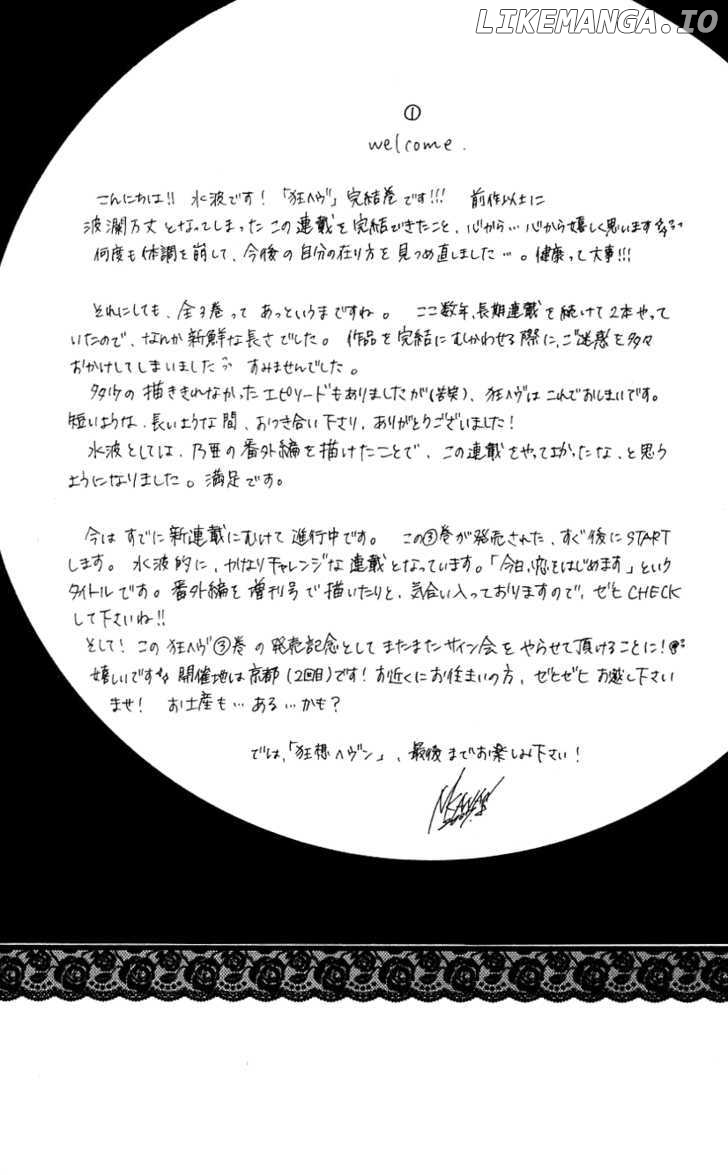 LIKEMANGA.IO
①
welcome.
こんにちは!! 水波です!「狂ヘヴ」完結巻です!!! 前作以上に
波瀾万丈となってしまったこの連載を完結できたこと、心から…心から嬉しく思います
何度も体調を崩して、今後の自分の在り方を見つめ直しました…。健康って大事!!!
それにしても、全3巻って あっというまですね。 ここ数年、長期連載を続けて2本やって
いたので、なんか新鮮な長さでした。 作品を完結にむかわせる際に、ご迷惑を多々
おかけしてしまいました すみませんでした。
多少の描ききれなかったエピソードもありましたが(苦笑)、狂ヘヴはこれでおしまいです。
短いような、長いような間、おつき合い下さり、ありがとうございました!
水波としては、乃亜の番外編を描けたことで、この連載をやってよかったな、と思う
ようになりました。満足です。
今はすでに新連載にむけて進行中です。 この③巻が発売された、すぐ後にSTART
します。 水波的に、かなりチャレンジな連載となっています。「今日、恋をはじめます」という
タイトルです。番外編を増刊号で描いたりと、気合い入っておりますので、ぜひCHECK
して下さいね!!
そして!この狂ヘヴ③巻の発売記念としてまたまたサイン会をやらせて頂けることに!
嬉しいです 開催地は京都(2回目)です!お近くにお住まいの方、ぜひぜひお越し下さい
ませ! お土産も…ある…かも?
では、「狂想ヘヴン」、最後までお楽しみ下さい!